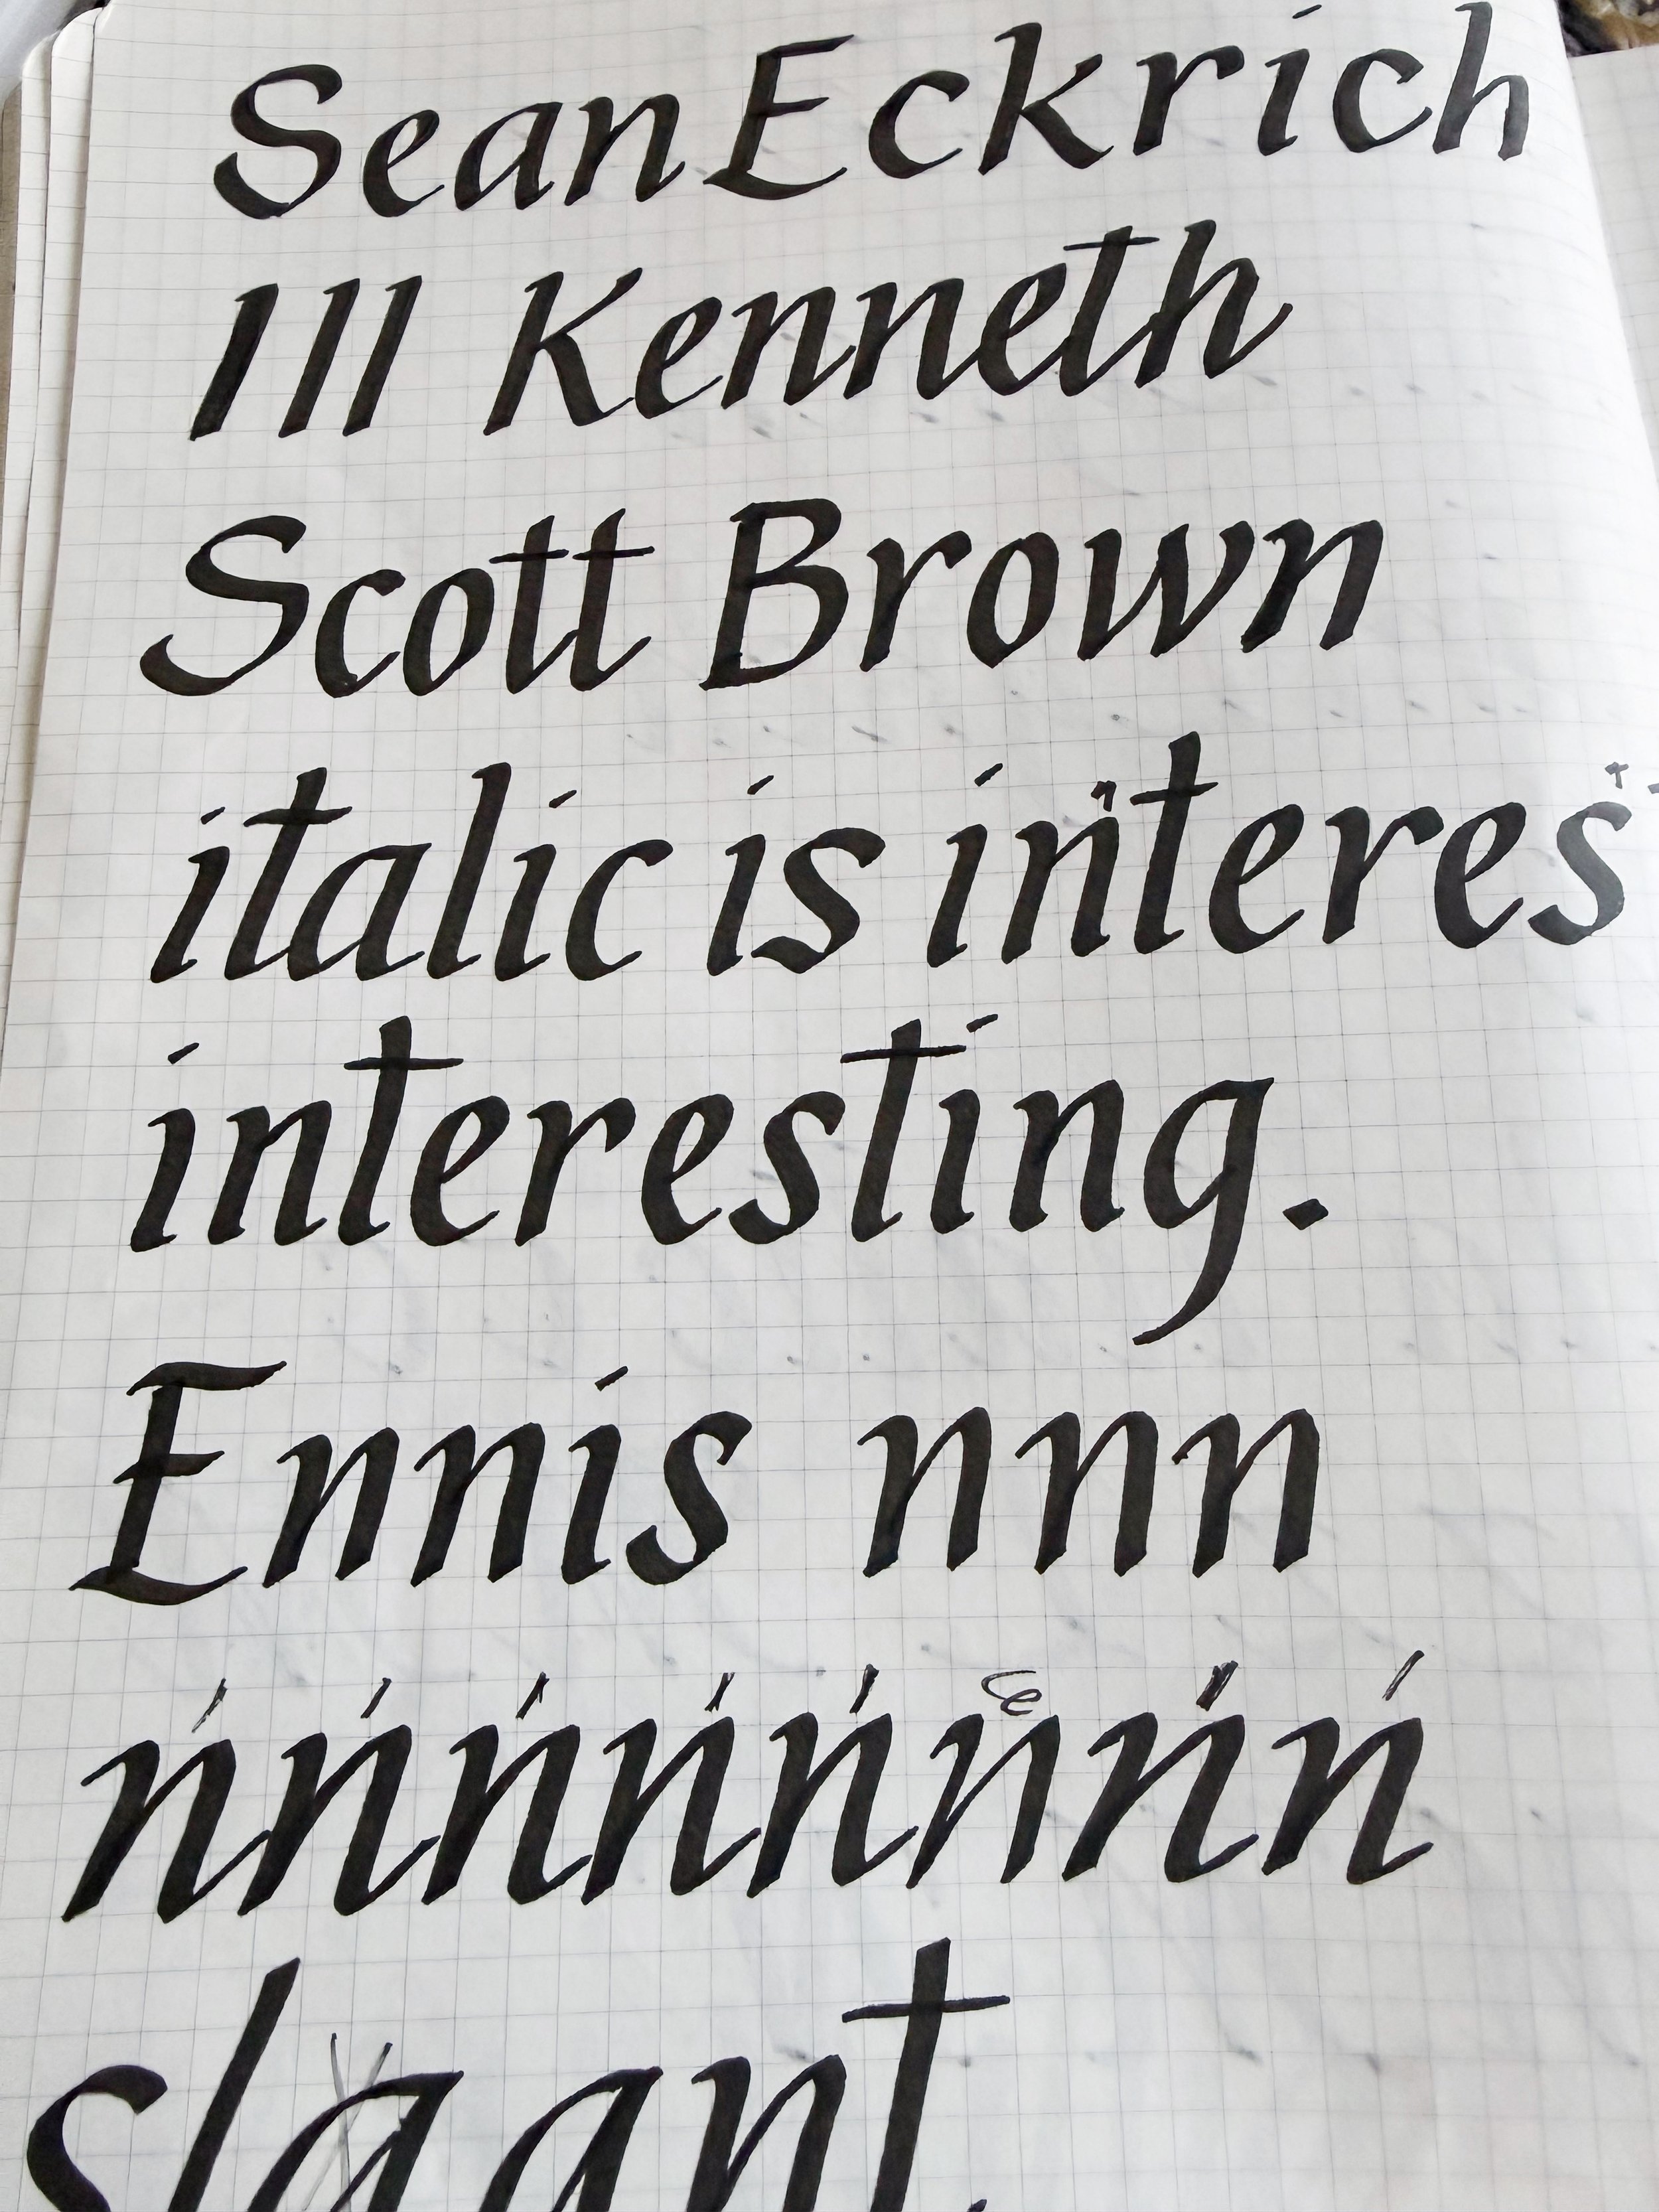 Sean Eckrich
III Kenneth
Scott Brown
italic is interes
interesting.
Ennis nnn
nnnnnnnn
slaant